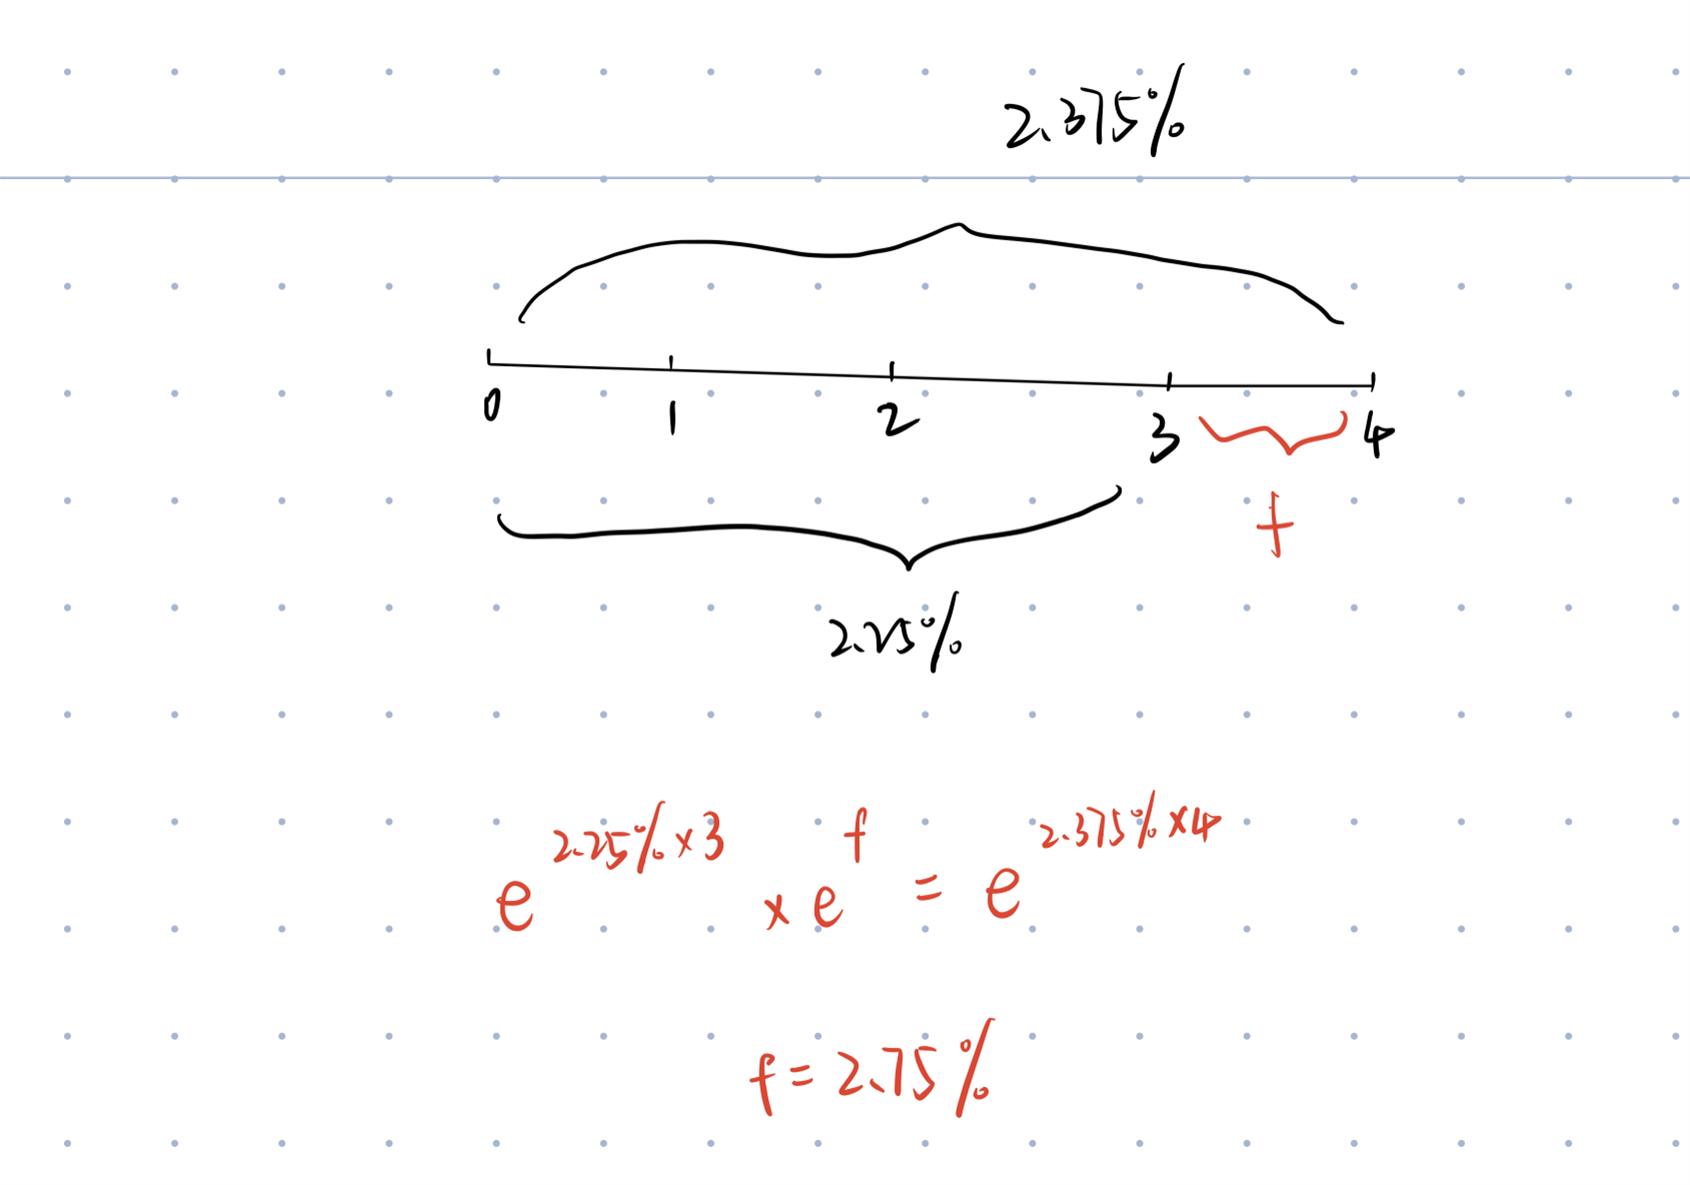 2.375%
0 1 2 3 4
f
2.25%
e^2.25%×3 × e^f = e^2.375%×4
f = 2.75%